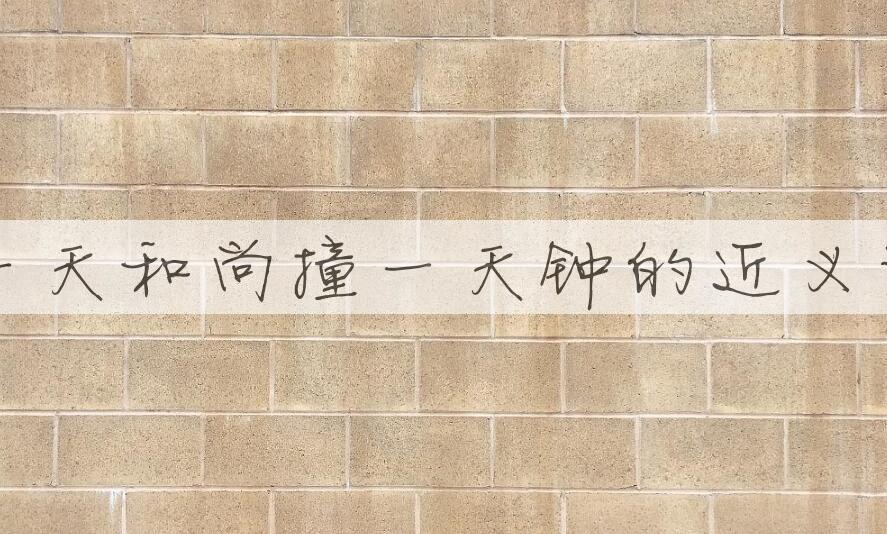 一天和尚撞一天钟的近义